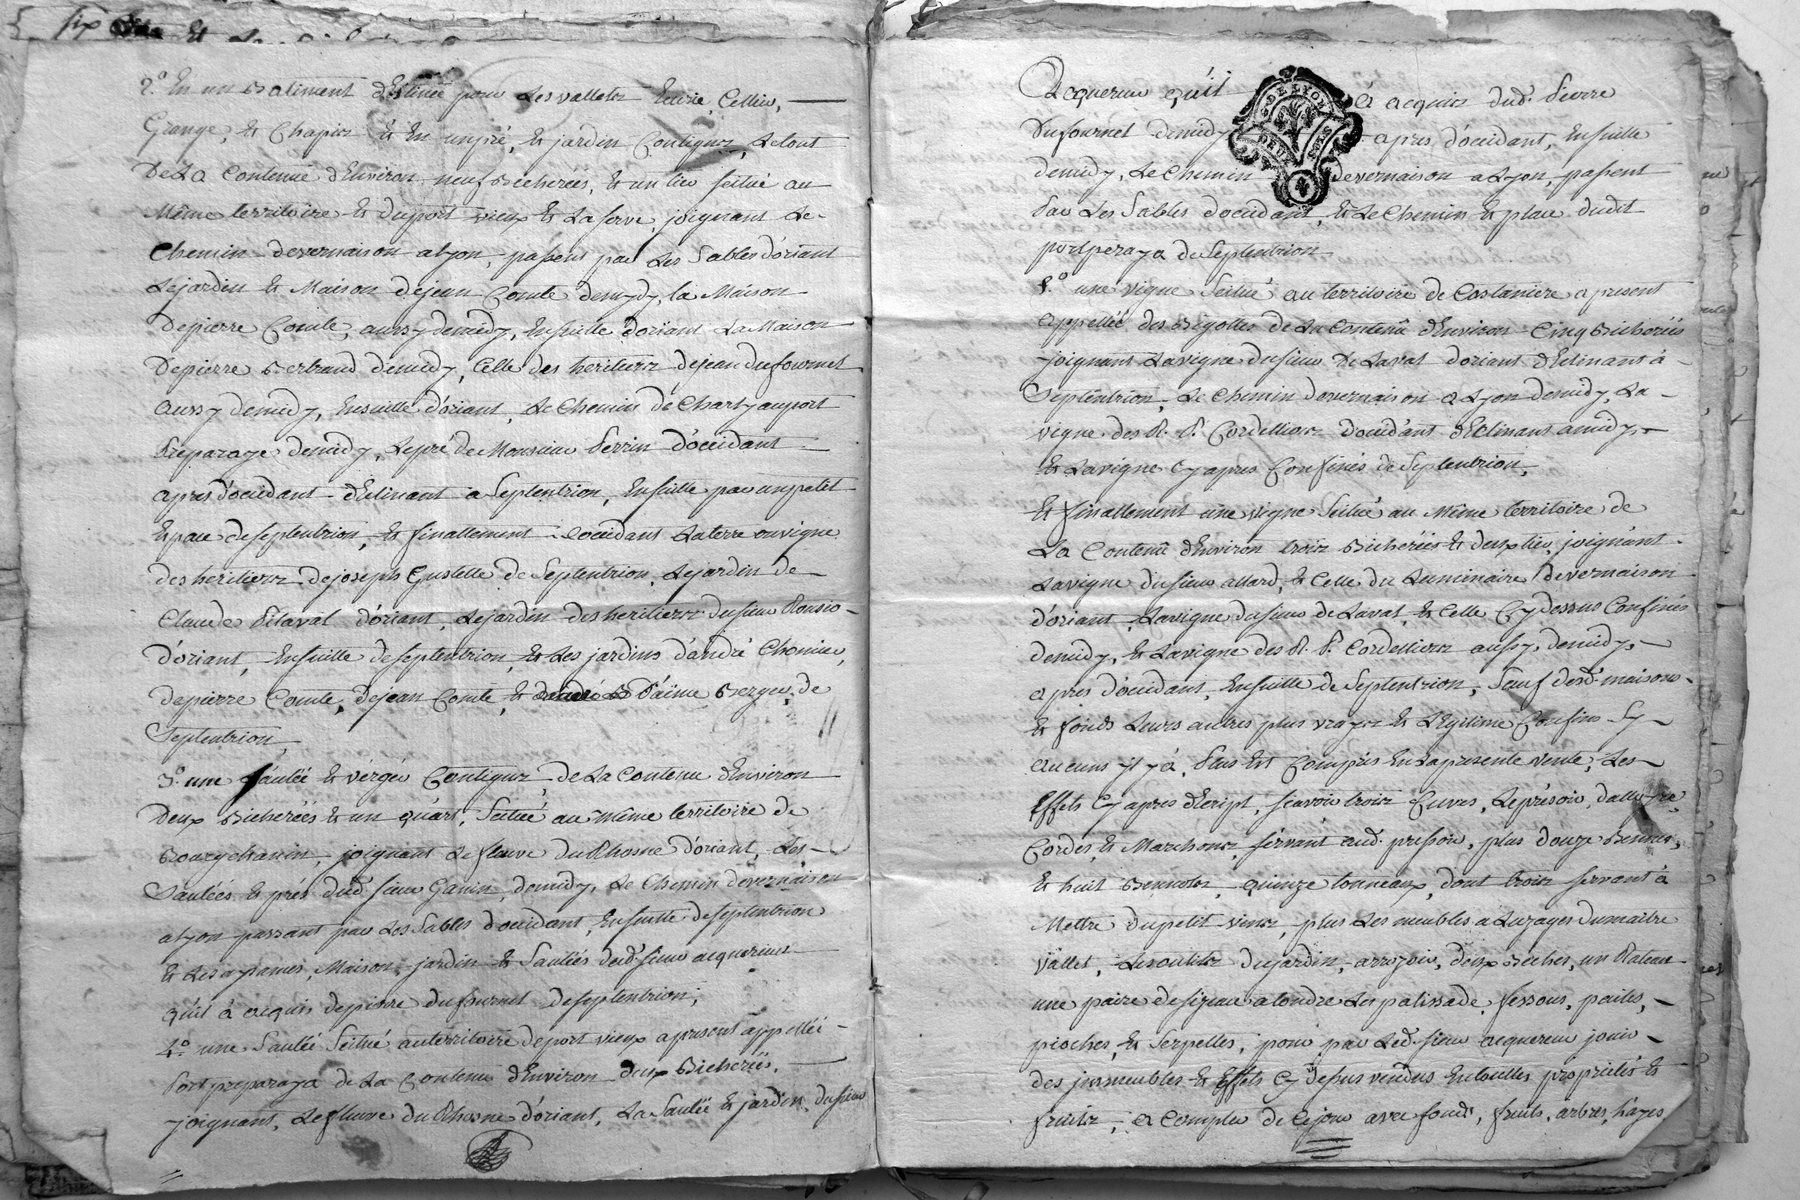 six et
2° En un Batiment déstinée pour Les valletz Ecurie, Cellier,
Grange, et Chapiz et En un pré, et jardin Contiguz, Letout
De La Contenue dEnviron neuf Bicherées, et un tier scitué au
Même territoire et du port vieux et La serve, joignant Le
Chemin devernaison alyon, passent par Les Sables d'oriant
Le jardin et Maison dejean Comte demidy, la Maison
Depierre Comte, aussy demidy, Ensuitte d'oriant La Maison
Depierre Bertrand demidy, Celle des heritierz dejean dufournet
aussy demidy, Ensuitte d'oriant, Le Chemin de Charly auport
Préparaye demidy, Lepré de Monsieur Perrin d'occidant
apres d'occidant déclinant a Septentrion, Ensuitte par unpetit
Espace deseptentrion, et finallement doccidant La terre ouvigne
des heritierz dejoseph Gustelle de Septentrion, Le jardin de
Claude Pitaval d'oriant, Le jardin des heritierz dusieur Ponsio
d'oriant, Ensuitte deseptentrion, et Les jardins d'andré Chomier,
depierre Comte, dejean Comte, et d'aime Berger, de
Septentrion,
3° une saulée et vérgér Contiguz, de La contenue dEnviron
Deux Bicherées et un quárt, Scitué au même territoire de
Bourgchanin, joignant Le fleuve du Rhosne d'oriant, Les
Saulées et prés dud. sieur Ganin, demidy, Le Chemin devernaison
alyon passant par Les Sables d'occidant, Ensuitte deseptentrion
et Maison, jardin et Saulées dud. sieur acquereur
qu'il à acquis depierre dufournet deseptentrion;
4° une Saulée Scitué auterritoire deport vieux apresent appellée
Port preparaya de La Contenue dEnviron deux Bicherées,
joignant, Le fleuve du Rhosne d'oriant, La Saulée et jardin, dusieur
Acquereur qu'il à acquis dud. Pierre
G. DE LYON
DEUX SOLS
Dufournet demidy apres d'occidant, Ensuitte
demidy, Le Chemin devernaison a Lyon, passent
Par Les Sables doccidant, et Le Chemin et place dudit
port peraya de Septentrion
5° une vigne Scitué au territoire de Costaniere apresent
appellée des Bigottes de La Contenue dEnviron Cinq Bicherées
joignant Lavigne dusieur de Laval d'oriant déclinant à
Septentrion, Le Chemin devernaison a Lyon demidy, La
vigne des R. P. Cordellierz d'occidant déclinant amidy,
et Lavigne cy apres Confinés de Septentrion,
Et finallement une vigne Scitué au Même territoire de
La Contenue dEnviron trois Bicherées et deux tier, joignant
Lavigne dusieur allard, et Celle du Luminaire devernaison
d'oriant, Lavigne dusieur de Laval, et Celle Cy dessus Confinés
demidy, et Lavigne des R. P. Cordellierz aussy demidy,
apres d'occidant, Ensuitte de Septentrion, Sauf desd. maisons
et fonds Leurs autres plus vrayz et Légitime Confins Sy
aucuns il y à, Plus Est Compris En la presente vente, Les
Effets Cy apres décript, scavoir troiz Cuves, Le présoir,
Cordes, et servant aud. pressoir, plus douze Bennes,
et huit Bennotz, quinze tonneaux, dont troiz servant à
Mettre du petit vin, plus Les meubles a Luzages dumaitre
vallet, Lesoutilz dujardin, arrozoir, deux Béches, un Rateau
une paire desizeau atondre Les palissade, fessous, pailes,
pioches, et Serpettes, pour par Led. sieur acquereur jouir
des immeubles et Effets Cy dessus vendus Entouttes proprietés et
fruitz, a Compter de Cejour avec fonds, fruits, arbres, hayes